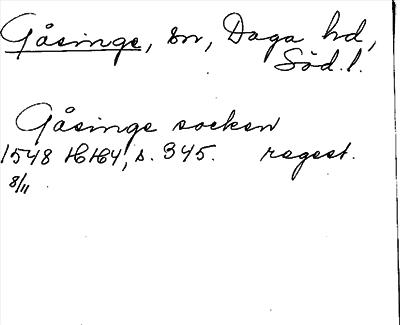 Gåsinge, sn, Daga hd,
Söd. l.
Gåsinge socken
1548 HH4, s. 345. regest.
8/11